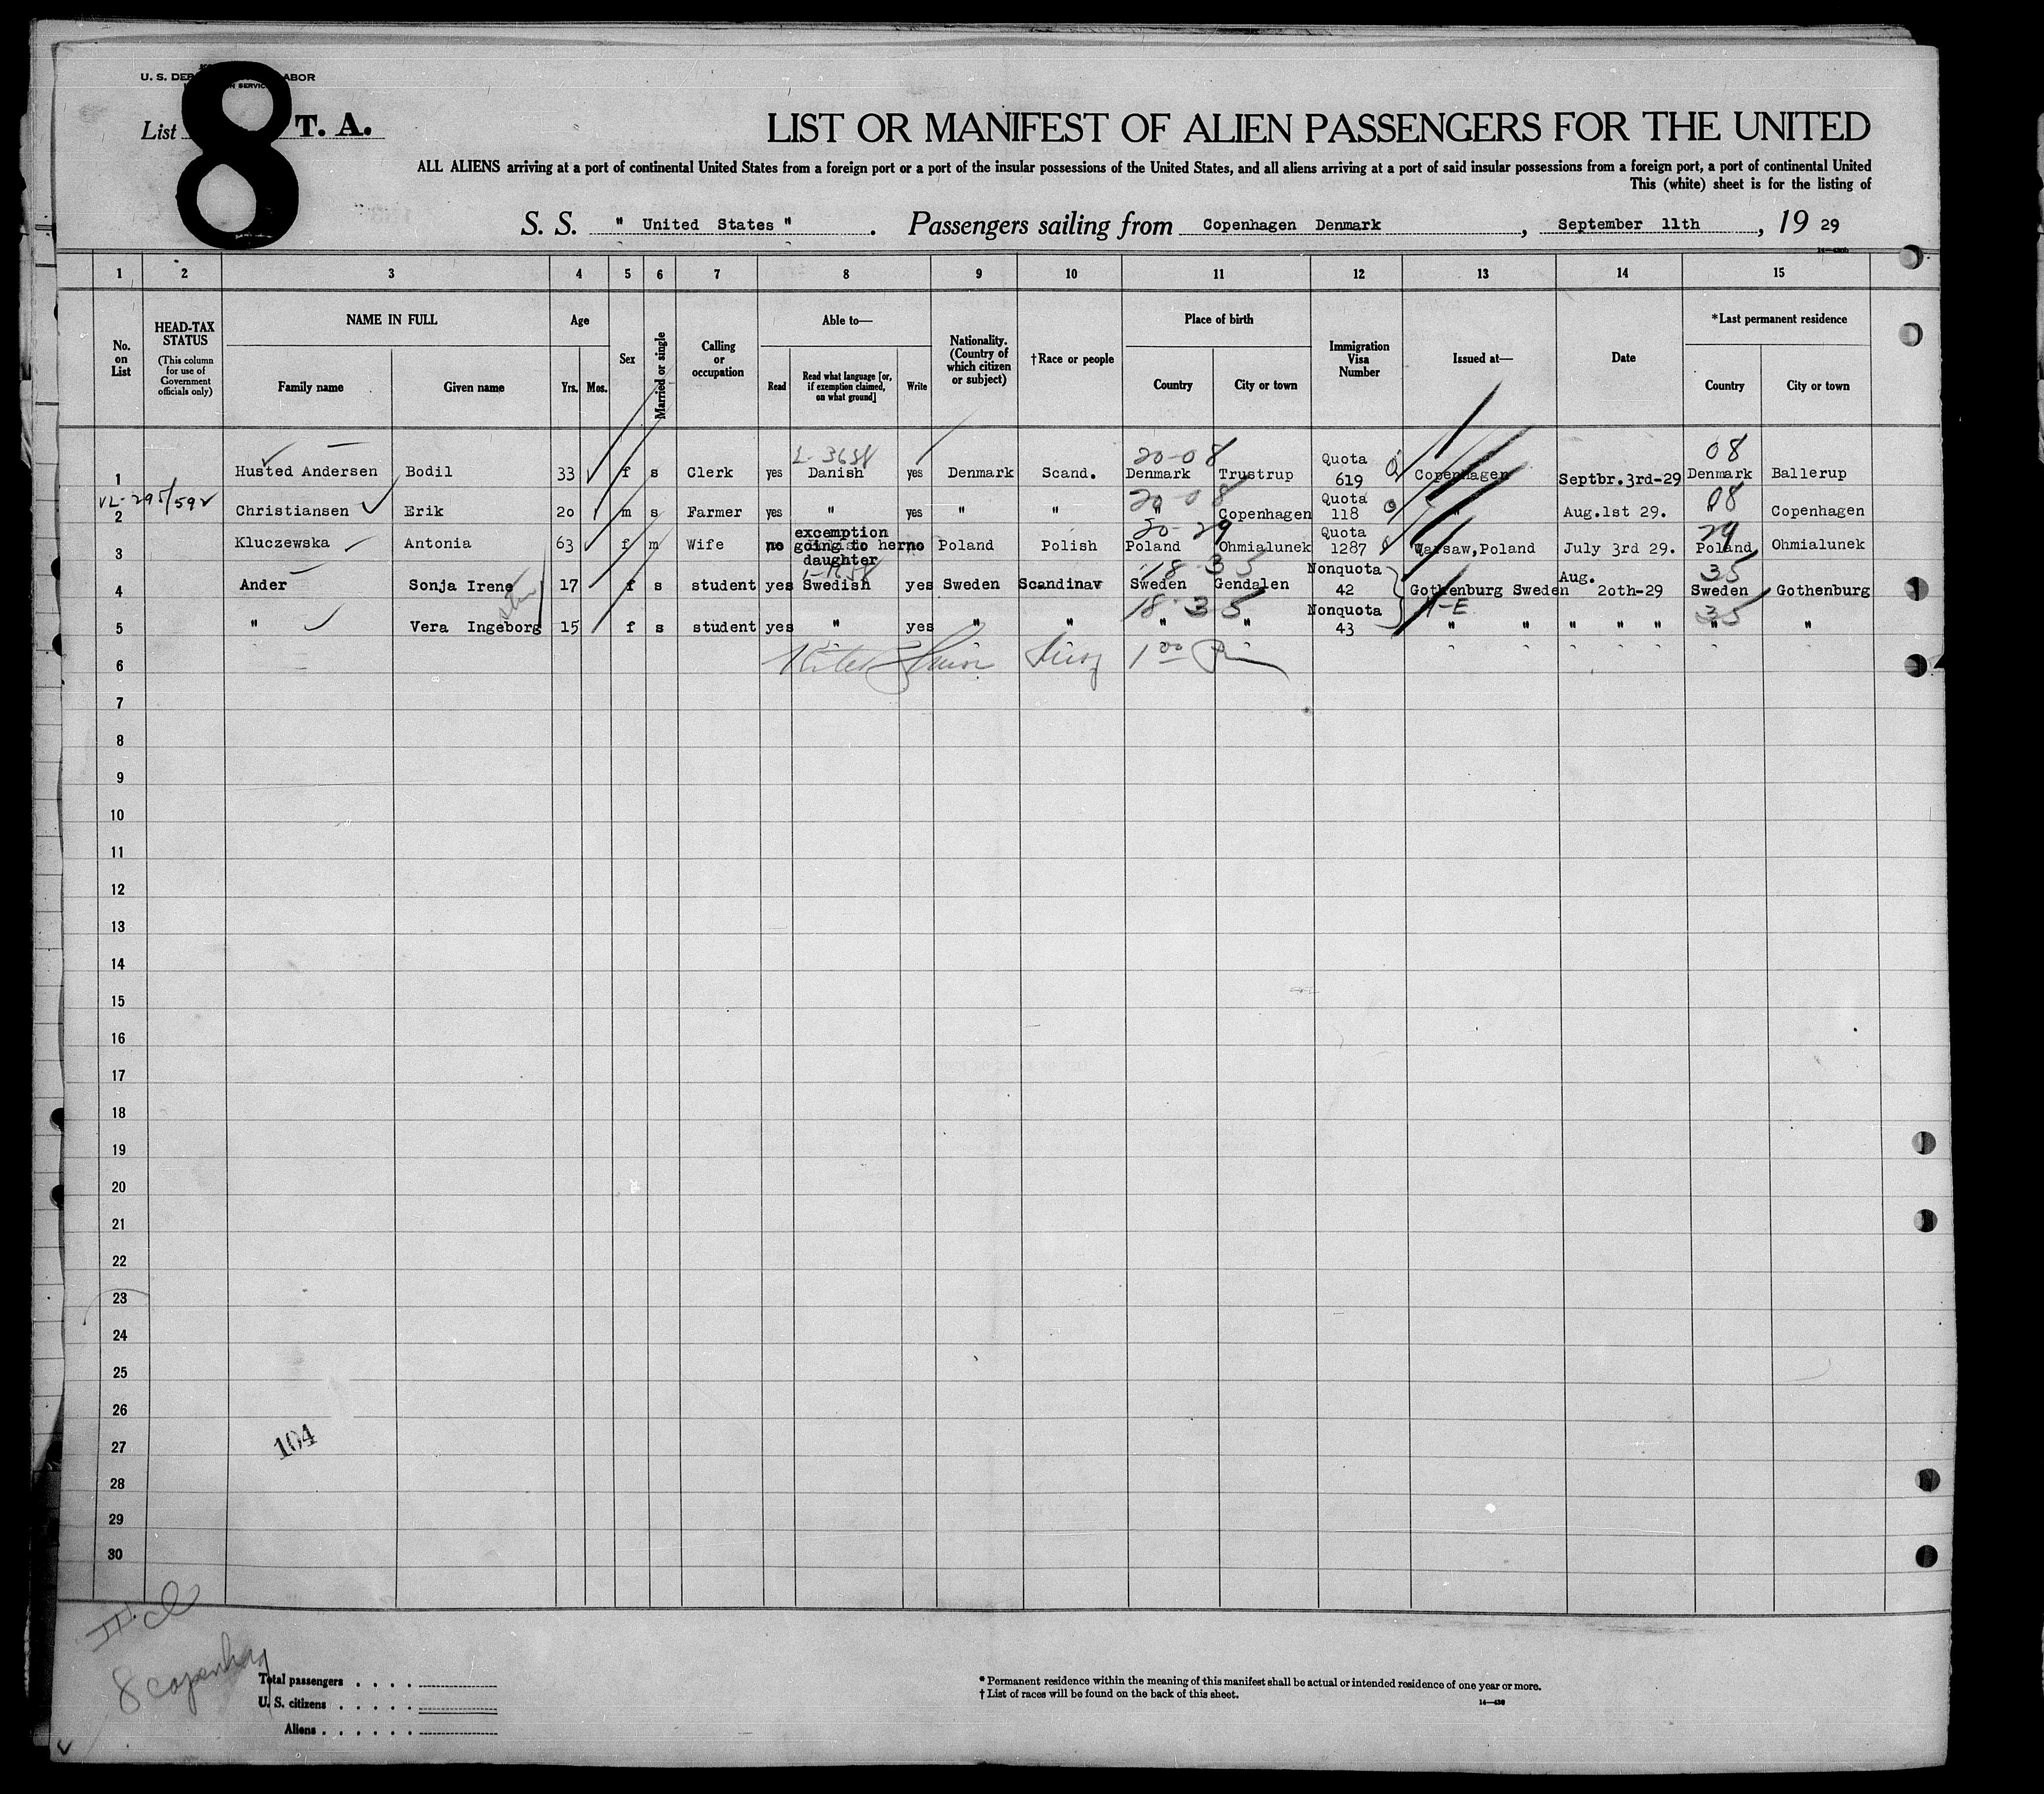 U. S. DEP LABOR
N SERVICE
List 8 T. A.
LIST OR MANIFEST OF ALIEN PASSENGERS FOR THE UNITED
ALL ALIENS arriving at a port of continental United States from a foreign port or a port of the insular possessions of the United States, and all aliens arriving at a port of said insular possessions from a foreign port, a port of continental United
This (white) sheet is for the listing of
S. S. " United States " . Passengers sailing from Copenhagen Denmark , September 11th , 19 29
1 2 3 4 5 6 7 8 9 10 11 12 13 14 15
No. on List
HEAD-TAX STATUS
(This column for use of Government officials only)
NAME IN FULL
Family name Given name
Age
Yrs. Mos.
Sex
Married or single
Calling or occupation
Able to—
Read Read what language [or, if exemption claimed, on what ground] Write
Nationality. (Country of which citizen or subject)
†Race or people
Place of birth
Country City or town
Immigration Visa Number
Issued at—
Date
*Last permanent residence
Country City or town
L-3658 20-08 08
1 Husted Andersen Bodil 33 f s Clerk yes Danish yes Denmark Scand. Denmark Trustrup Quota 619 Copenhagen Septbr.3rd-29 Denmark Ballerup
VL-295/592 20-08 08
2 Christiansen Erik 20 m s Farmer yes " yes " " " Copenhagen Quota 118 " Aug.1st 29. " Copenhagen
20-29 29
3 Kluczewska Antonia 63 f m Wife no excemption going to her daughter no Poland Polish Poland Ohmialunek Quota 1287 Warsaw,Poland July 3rd 29. Poland Ohmialunek
18-35 35
4 Ander Sonja Irene 17 f s student yes Swedish yes Sweden Scandinav Sweden Gendalen Nonquota 42 Gothenburg Sweden Aug. 20th-29 Sweden Gothenburg
18-35 4-E 35
5 " Vera Ingeborg 15 f s student yes " yes " " " " Nonquota 43 " " " " " " "
6
7
8
9
10
11
12
13
14
15
16
17
18
19
20
21
22
23
24
25
26
27
28
29
30
104
8 Copenhag
Total passengers . . . .
U. S. citizens . . . . .
Aliens . . . . . .
* Permanent residence within the meaning of this manifest shall be actual or intended residence of one year or more.
† List of races will be found on the back of this sheet.
14—430